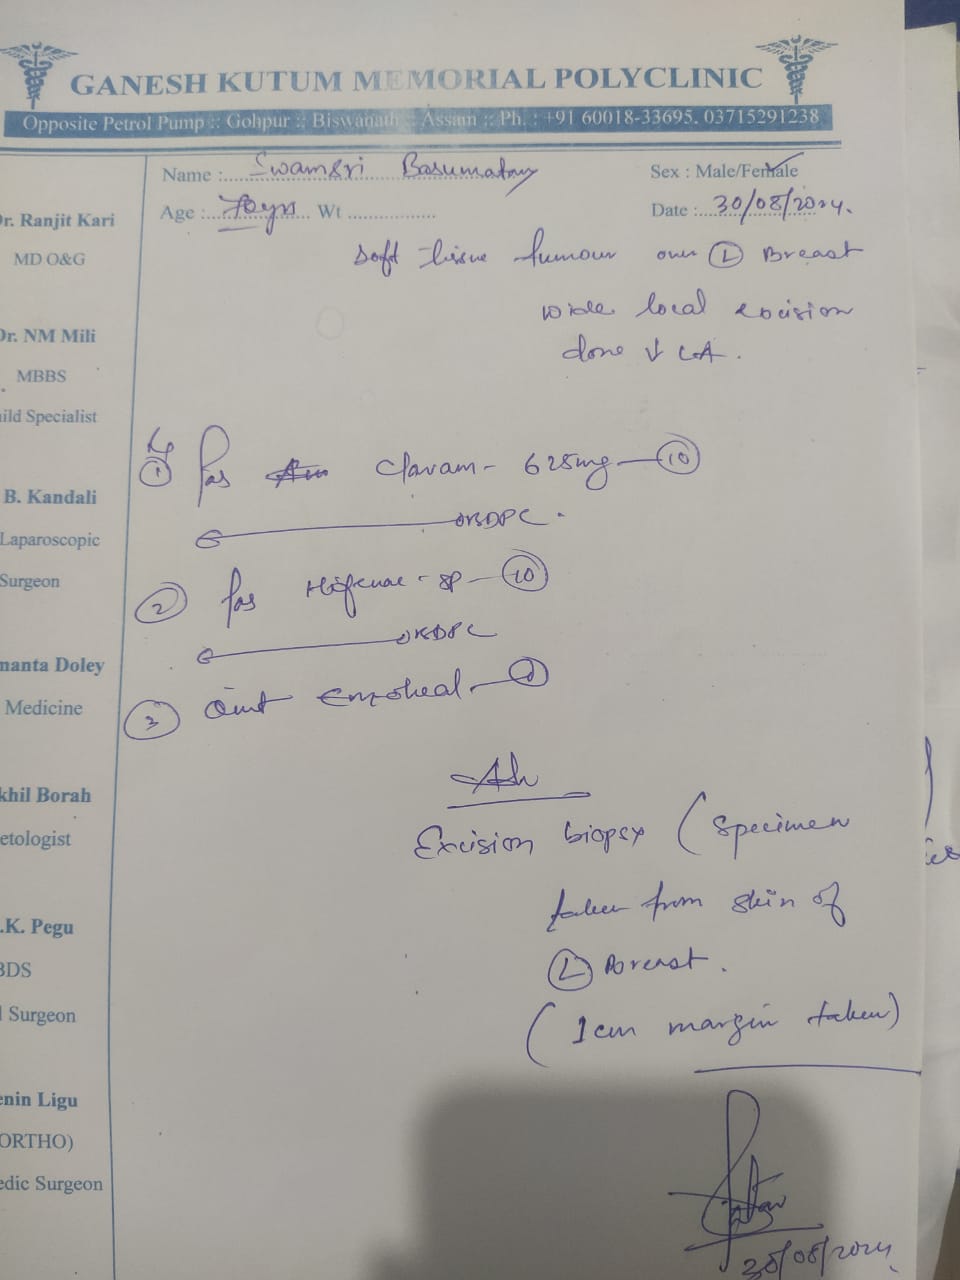 GANESH KUTUM MEMORIAL POLYCLINIC
Opposite Petrol Pump :: Gohpur :: Biswanath :: Assam :: Ph. : +91 60018-33695, 03715291238
Name : Swamsri Basumatary
Sex : Male/Female
Age : 70yrs Wt
Date : 30/08/2024.
Dr. Ranjit Kari
MD O&G
Dr. NM Mili
MBBS
hild Specialist
B. Kandali
Laparoscopic
Surgeon
manta Doley
Medicine
khil Borah
etologist
.K. Pegu
BDS
l Surgeon
enin Ligu
ORTHO)
edic Surgeon
Soft tissue tumour over (L) Breast
wide local excision
done ↓ LA.
(1) Clavam - 625mg — (10)
(2) Hifenac - SP — (10)
(3) Oint Enzoheal —
Adv
Excision biopsy (Specimen
taken from skin of
(L) Breast.
(1cm margin taken)
30/08/2024